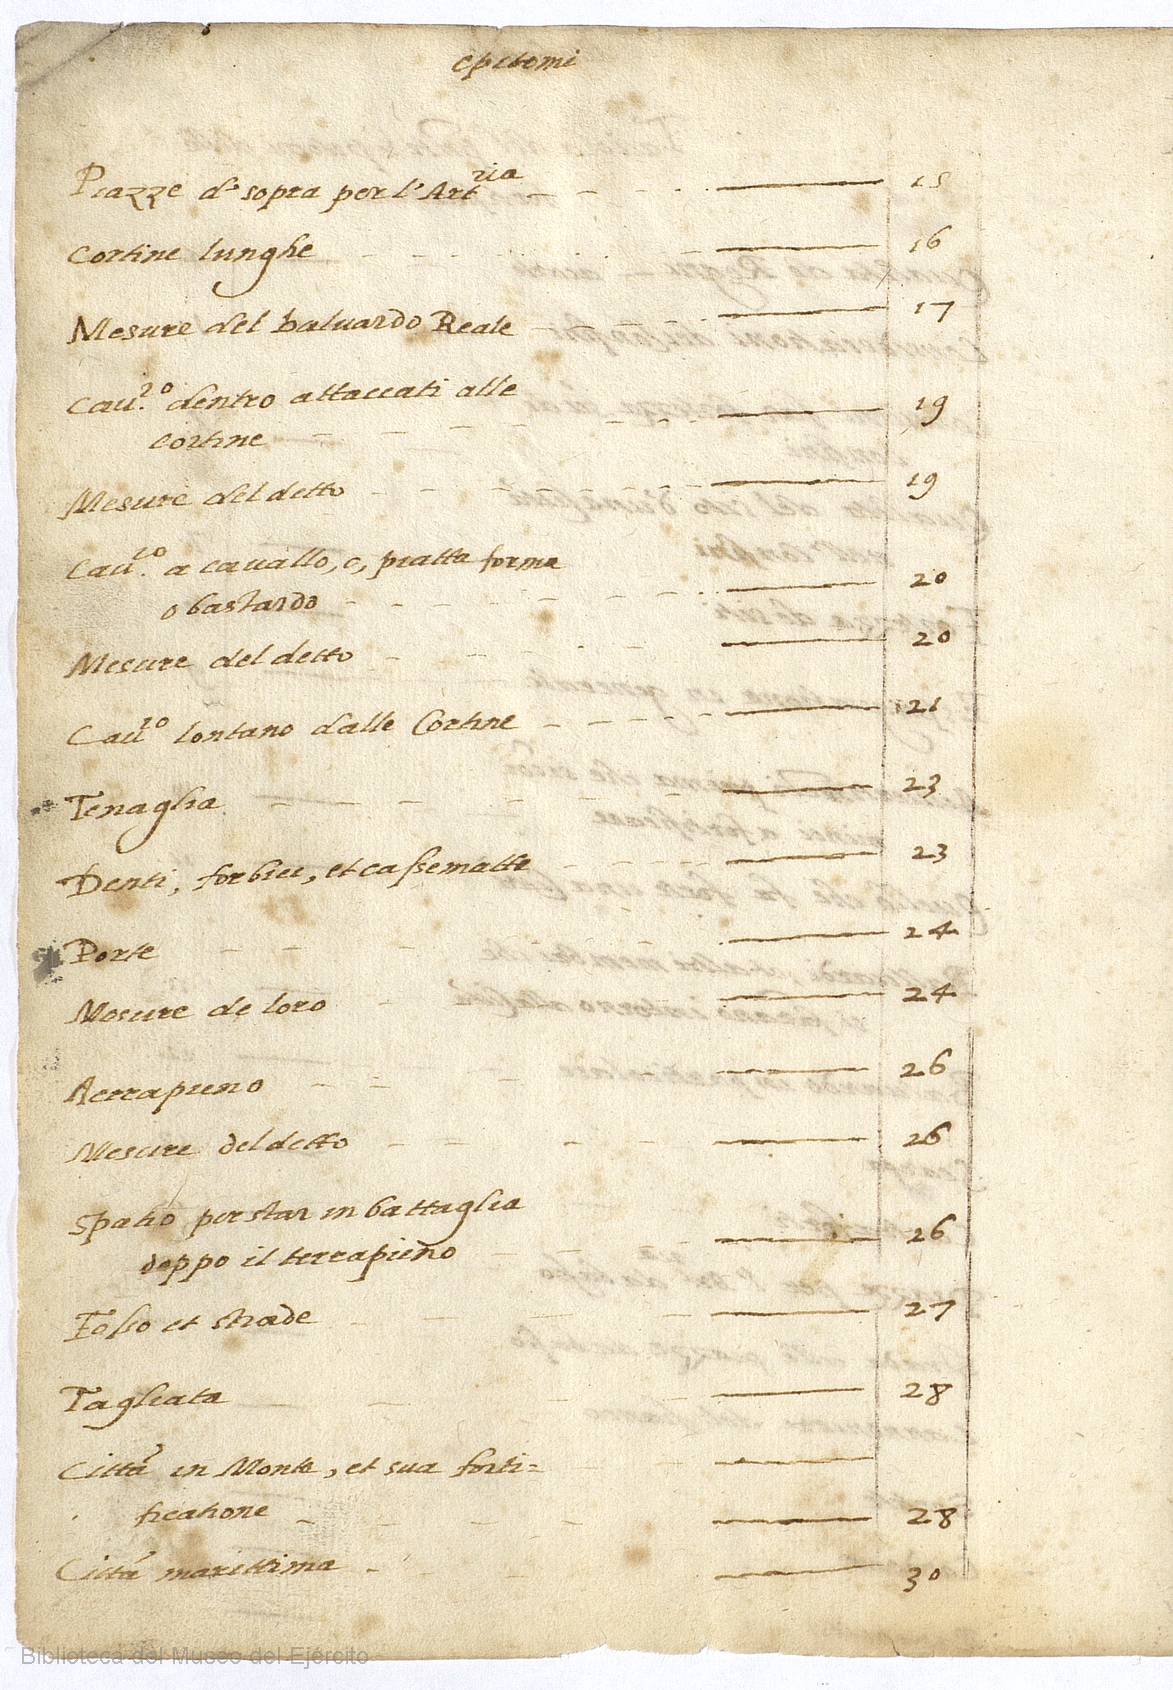 epitomi
Piazze di sopra per l'Art.ria 15
Cortine lunghe 16
Mesure del baluardo Reale 17
Cau.ro dentro attaccati alle
cortine 19
Mesure del detto 19
Cau.ro a cauallo, o, piatta forma
o bastardo 20
Mesure del detto 20
Cau.ro lontano dalle Cortine 21
Tenaglia 23
Denti, forbici, et cassematte 23
Porte 24
Mesure de loro 24
Terrapieno 26
Mesure del detto 26
Spatio per star in battaglia
doppo il terrapieno 26
Fosso et strade 27
Tagliata 28
Città in Monte, et sua forti=
ficatione 28
Città marittima 30
Biblioteca del Museo del Ejército